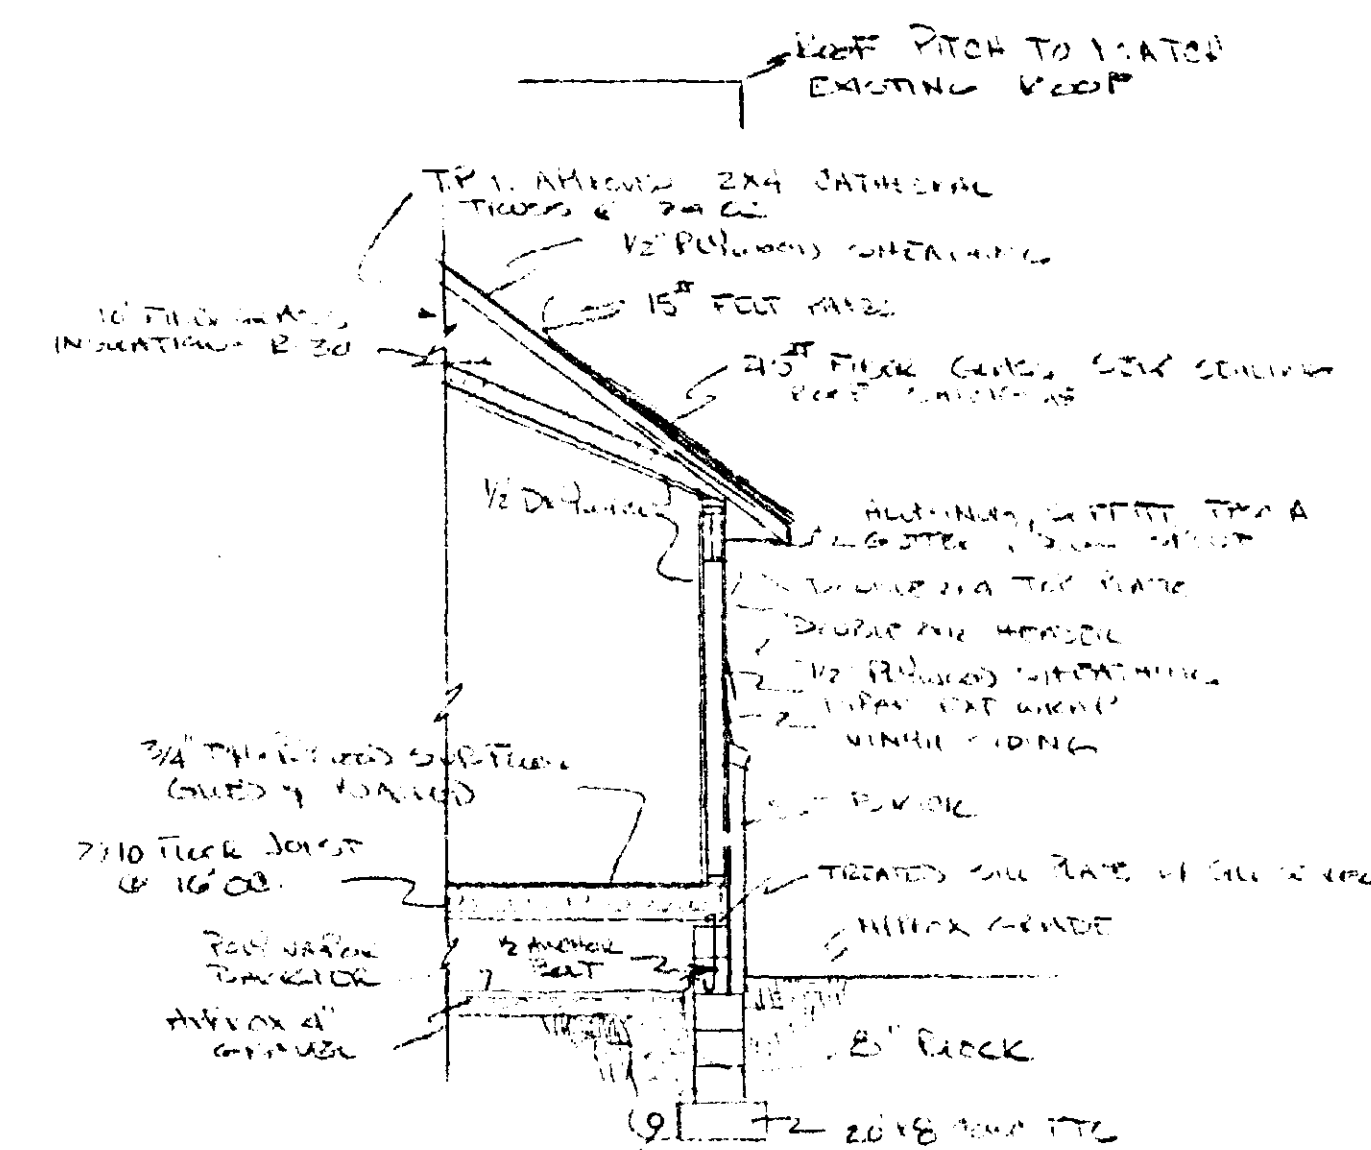 ROOF PITCH TO MATCH
EXISTING ROOF
T.P.I. APPROVED 2X4 CATHEDRAL
TRUSS @ 24 OC
1/2" PLYWOOD SHEATHING
15# FELT PAPER
10" FIBERGLASS
INSULATION R-30
FIBER GLASS SELF SEALING
ROOF SHINGLES
1/2"
ALUMINUM, SOFFIT
GUTTER
DOUBLE 2X4 TOP PLATE
DOUBLE HEADER
1/2 PLYWOOD SHEATHING
EXT WRAP
VINYL SIDING
3/4" PLYWOOD
GLUED &
2X10 FLOOR JOIST
@ 16" OC.
TREATED SILL PLATE SILL
APPROX GRADE
POLY VAPOR
BARRIER
1/2 ANCHOR
BOLT
APPROX 4"
GRAVEL
8" BLOCK
20 X 8 FTG